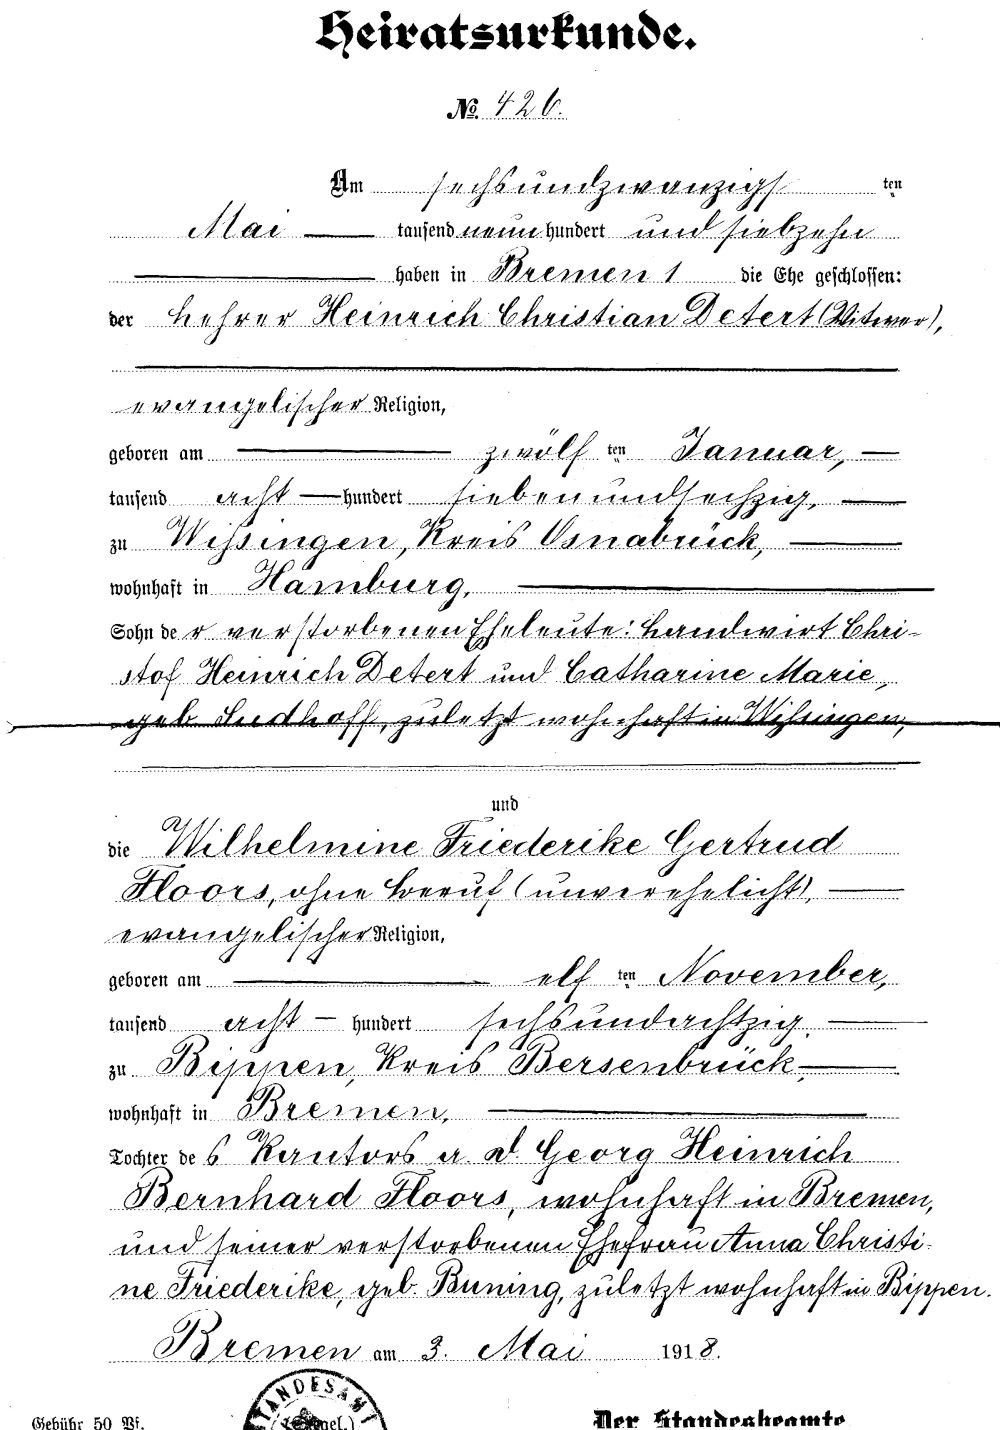 Heiratsurkunde.
No. 426.
Am sechsundzwanzigs ten
Mai tausend neun hundert und siebzehn
haben in Bremen 1 die Ehe geschlossen:
der Lehrer Heinrich Christian Detert (Witwer),
evangelischer Religion,
geboren am zwölf ten Januar,
tausend acht hundert siebenundsechzig,
zu Wissingen, Kreis Osnabrück,
wohnhaft in Hamburg,
Sohn der verstorbenen Eheleute: Landwirt Chri-
stof Heinrich Detert und Catharine Marie,
geb. Sudhoff, zuletzt wohnhaft in Wissingen,
und
die Wilhelmine Friederike Gertrud
Floors, ohne Beruf (unverehelicht),
evangelischer Religion,
geboren am elf ten November,
tausend acht hundert sechsundachtzig,
zu Bippen, Kreis Bersenbrück,
wohnhaft in Bremen,
Tochter des Kantors a. d. Georg Heinrich
Bernhard Floors, wohnhaft in Bremen,
und seiner verstorbenen Ehefrau Anna Christi-
ne Friederike, geb. Buning, zuletzt wohnhaft in Bippen.
Bremen am 3. Mai 1918.
STANDESAMT
Gebühr 50 Pf. (Siegel.) Der Standesbeamte